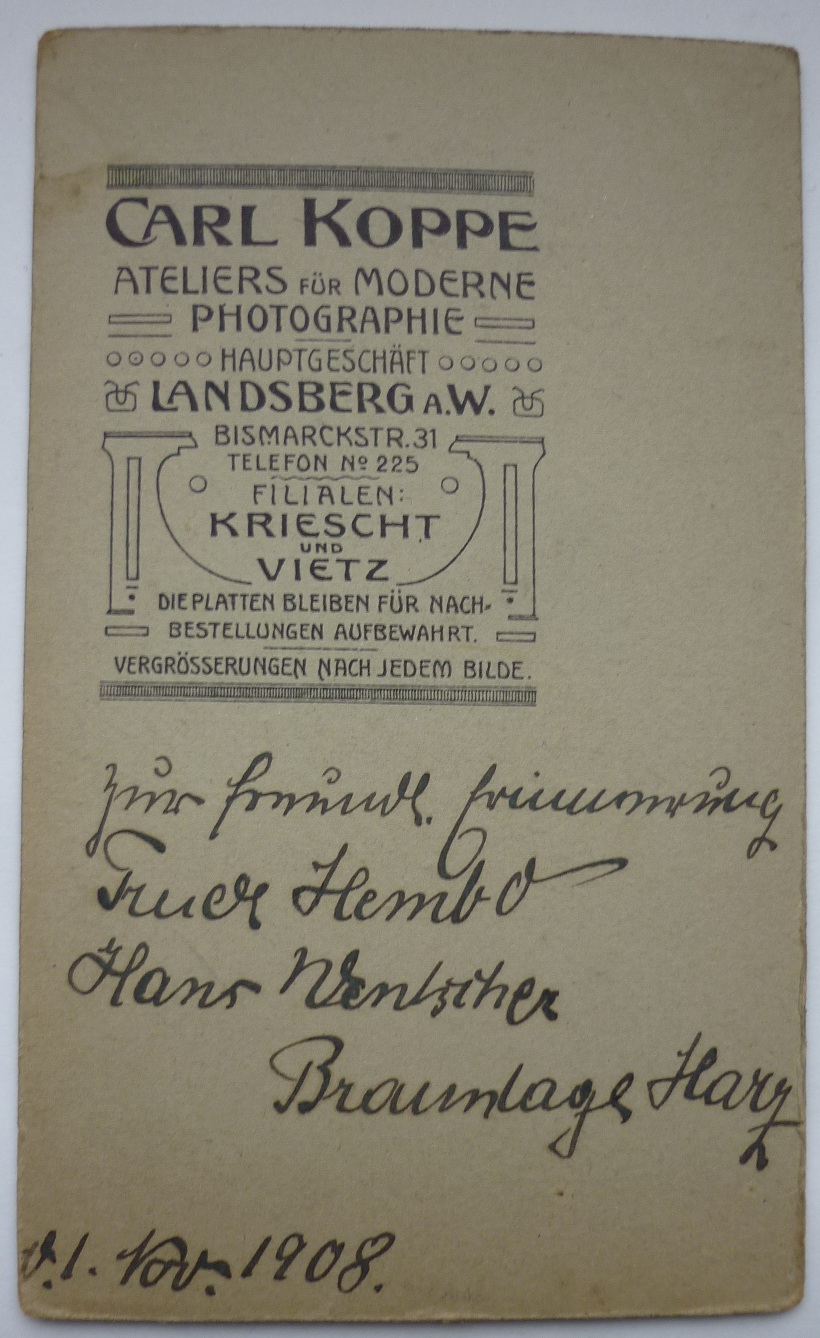 CARL KOPPE
ATELIERS FÜR MODERNE
PHOTOGRAPHIE
HAUPTGESCHÄFT
LANDSBERG A.W.
BISMARCKSTR. 31
TELEFON No 225
FILIALEN:
KRIESCHT
UND
VIETZ
DIE PLATTEN BLEIBEN FÜR NACH-
BESTELLUNGEN AUFBEWAHRT.
VERGRÖSSERUNGEN NACH JEDEM BILDE.
Zur freundl. Erinnerung
Trude Hembd
Hans Wentscher
Braunlage Harz
d. 1. Nov. 1908.